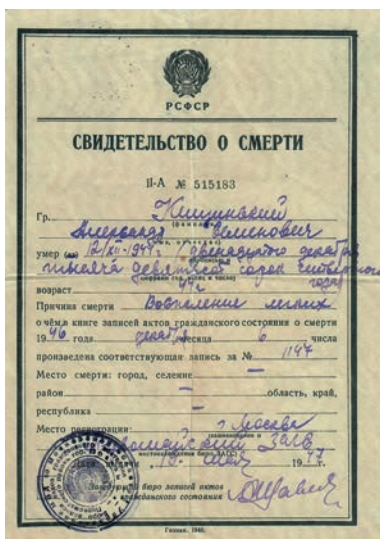 РСФСР
СВИДЕТЕЛЬСТВО О СМЕРТИ
II-А № 515183
Гр.
(фамилия)
Семенович
умер (ла) 12/XII-1944 г. двенадцатого декабря
тысяча девятьсот сорок четвертого
года
возраст 44
Причина смерти Воспаление легких
о чём в книге записей актов гражданского состояния о смерти
1946 года декабря месяца 6 числа
произведена соответствующая запись за № 1147
Место смерти: город, селение —
район — область, край,
республика —
Место регистрации: г. Москва
ЗАГС
19 47 г.
Заведующий бюро записей актов
гражданского состояния
Гознак. 1946.